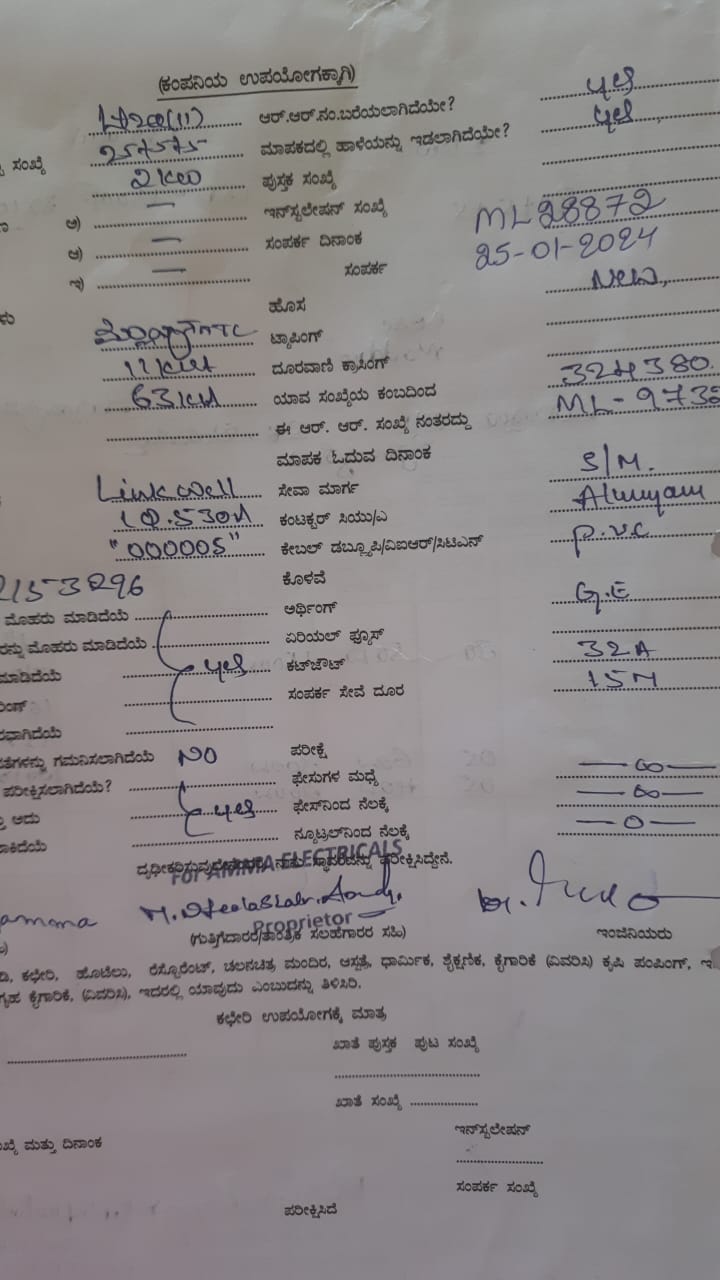 (ಕಂಪನಿಯ ಉಪಯೋಗಕ್ಕಾಗಿ)
ಆರ್.ಆರ್.ನಂ.ಬರೆಯಲಾಗಿದೆಯೇ? yes
ಸಂಖ್ಯೆ 257575 ಮಾಪಕದಲ್ಲಿ ಹಾಳೆಯನ್ನು ಇಡಲಾಗಿದೆಯೇ? yes
2KW ಪುಸ್ತಕ ಸಂಖ್ಯೆ
ಅ) — ಇನ್‌ಸ್ಟಲೇಷನ್ ಸಂಖ್ಯೆ ML28872
ಆ) — ಸಂಪರ್ಕ ದಿನಾಂಕ 25-01-2024
ಇ) — ಸಂಪರ್ಕ New,
ಹೊಸ
ಟ್ಯಾಪಿಂಗ್
11KV ದೂರವಾಣಿ ಕ್ರಾಸಿಂಗ್ 324380.
63KVA ಯಾವ ಸಂಖ್ಯೆಯ ಕಂಬದಿಂದ ML-973
ಈ ಆರ್. ಆರ್. ಸಂಖ್ಯೆ ನಂತರದ್ದು
ಮಾಪಕ ಓದುವ ದಿನಾಂಕ
Linkwell ಸೇವಾ ಮಾರ್ಗ S/M.
ಕಂಟಕ್ಟರ್ ಸಿಯು/ಎ
"000005" ಕೇಬಲ್ ಡಬ್ಲ್ಯೂಪಿ/ವಿಐಆರ್/ಸಿಟಿಎಸ್ P.V.C
2153296 ಕೊಳವೆ
ಮೊಹರು ಮಾಡಿದೆಯೆ ಅರ್ಥಿಂಗ್ G.E
ರನ್ನು ಮೊಹರು ಮಾಡಿದೆಯೆ ಏರಿಯಲ್ ಫ್ಯೂಸ್
ಮಾಡಿದೆಯೆ yes ಕಟ್‌ಔಟ್ 32A
ಸಂಪರ್ಕ ಸೇವೆ ದೂರ 15M
ಗಳನ್ನು ಗಮನಿಸಲಾಗಿದೆಯೆ NO ಪರೀಕ್ಷೆ
ಪರೀಕ್ಷಿಸಲಾಗಿದೆಯೆ? ಫೇಸುಗಳ ಮಧ್ಯೆ — ∞ —
ಅದು yes ಫೇಸ್‌ನಿಂದ ನೆಲಕ್ಕೆ — ∞ —
ನ್ಯೂಟ್ರಲ್‌ನಿಂದ ನೆಲಕ್ಕೆ — 0 —
ಪರೀಕ್ಷಿಸಿದ್ದೇನೆ.
For AMMA ELECTRICALS
Proprietor
(ಗುತ್ತಿಗೆದಾರರ/ತಾಂತ್ರಿಕ ಸಲಹೆಗಾರರ ಸಹಿ) ಇಂಜಿನಿಯರು
ಕಛೇರಿ, ಹೊಟೆಲು, ರೆಸ್ಟೊರೆಂಟ್, ಚಲನಚಿತ್ರ ಮಂದಿರ, ಆಸ್ಪತ್ರೆ, ಧಾರ್ಮಿಕ, ಶೈಕ್ಷಣಿಕ, ಕೈಗಾರಿಕೆ (ವಿವರಿಸಿ) ಕೃಷಿ ಪಂಪಿಂಗ್,
ಗೃಹ ಕೈಗಾರಿಕೆ, (ವಿವರಿಸಿ), ಇದರಲ್ಲಿ ಯಾವುದು ಎಂಬುದನ್ನು ತಿಳಿಸಿರಿ.
ಕಛೇರಿ ಉಪಯೋಗಕ್ಕೆ ಮಾತ್ರ
ಖಾತೆ ಪುಸ್ತಕ ಪುಟ ಸಂಖ್ಯೆ
ಖಾತೆ ಸಂಖ್ಯೆ
ಮತ್ತು ದಿನಾಂಕ ಇನ್‌ಸ್ಟಲೇಷನ್
ಸಂಪರ್ಕ ಸಂಖ್ಯೆ
ಪರೀಕ್ಷಿಸಿದೆ